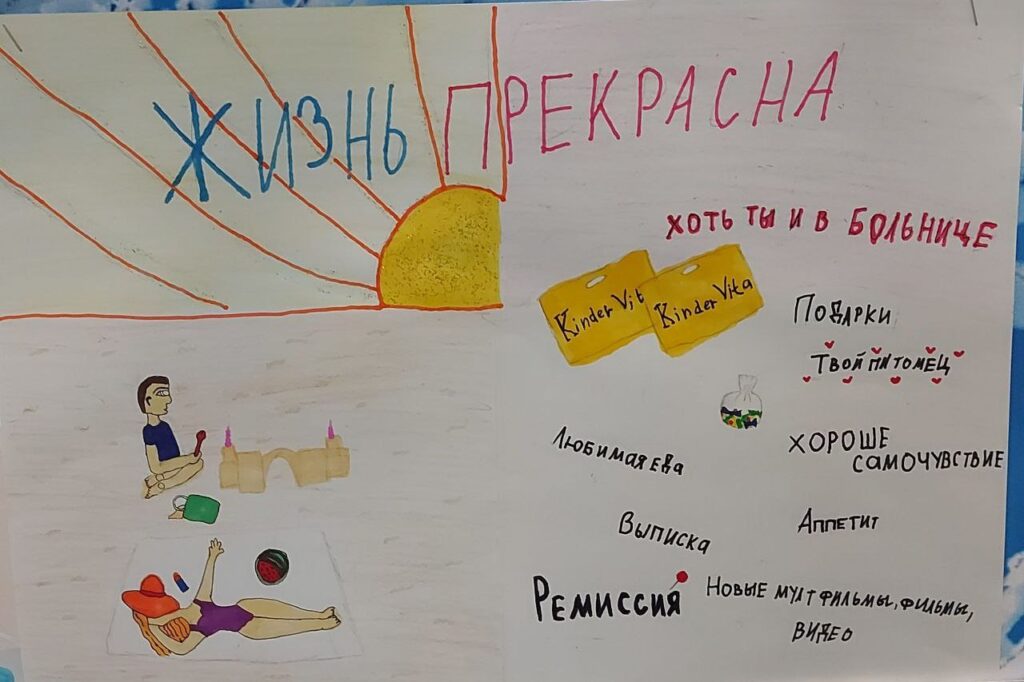 ЖИЗНЬ ПРЕКРАСНА
ХОТЬ ТЫ И В БОЛЬНИЦЕ
Kinder Vit
Kinder Vita
ПОДАРКИ
ТВОЙ ПИТОМЕЦ
ЛЮБИМАЯ ЕДА
ХОРОШЕ
САМОЧУВСТВИЕ
ВЫПИСКА
АППЕТИТ
РЕМИССИЯ
НОВЫЕ МУЛТФИЛЬМЫ, ФИЛЬМЫ,
ВИДЕО